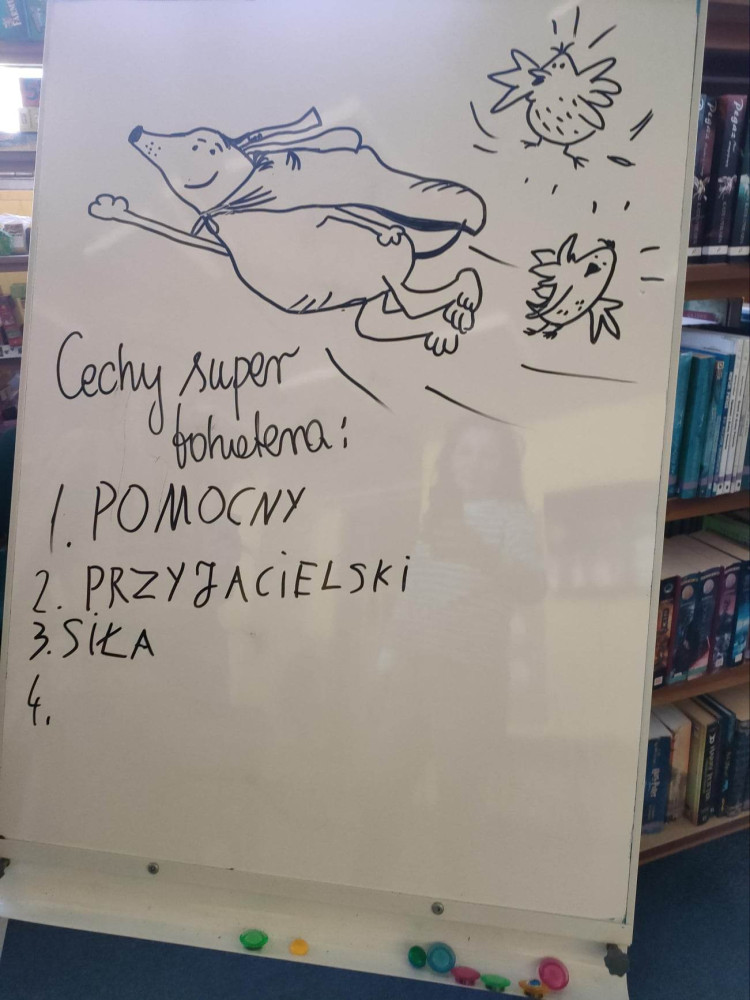 Cechy super
bohatera:
1. POMOCNY
2. PRZYJACIELSKI
3. SIŁA
4.
Pegaz
Pegaz